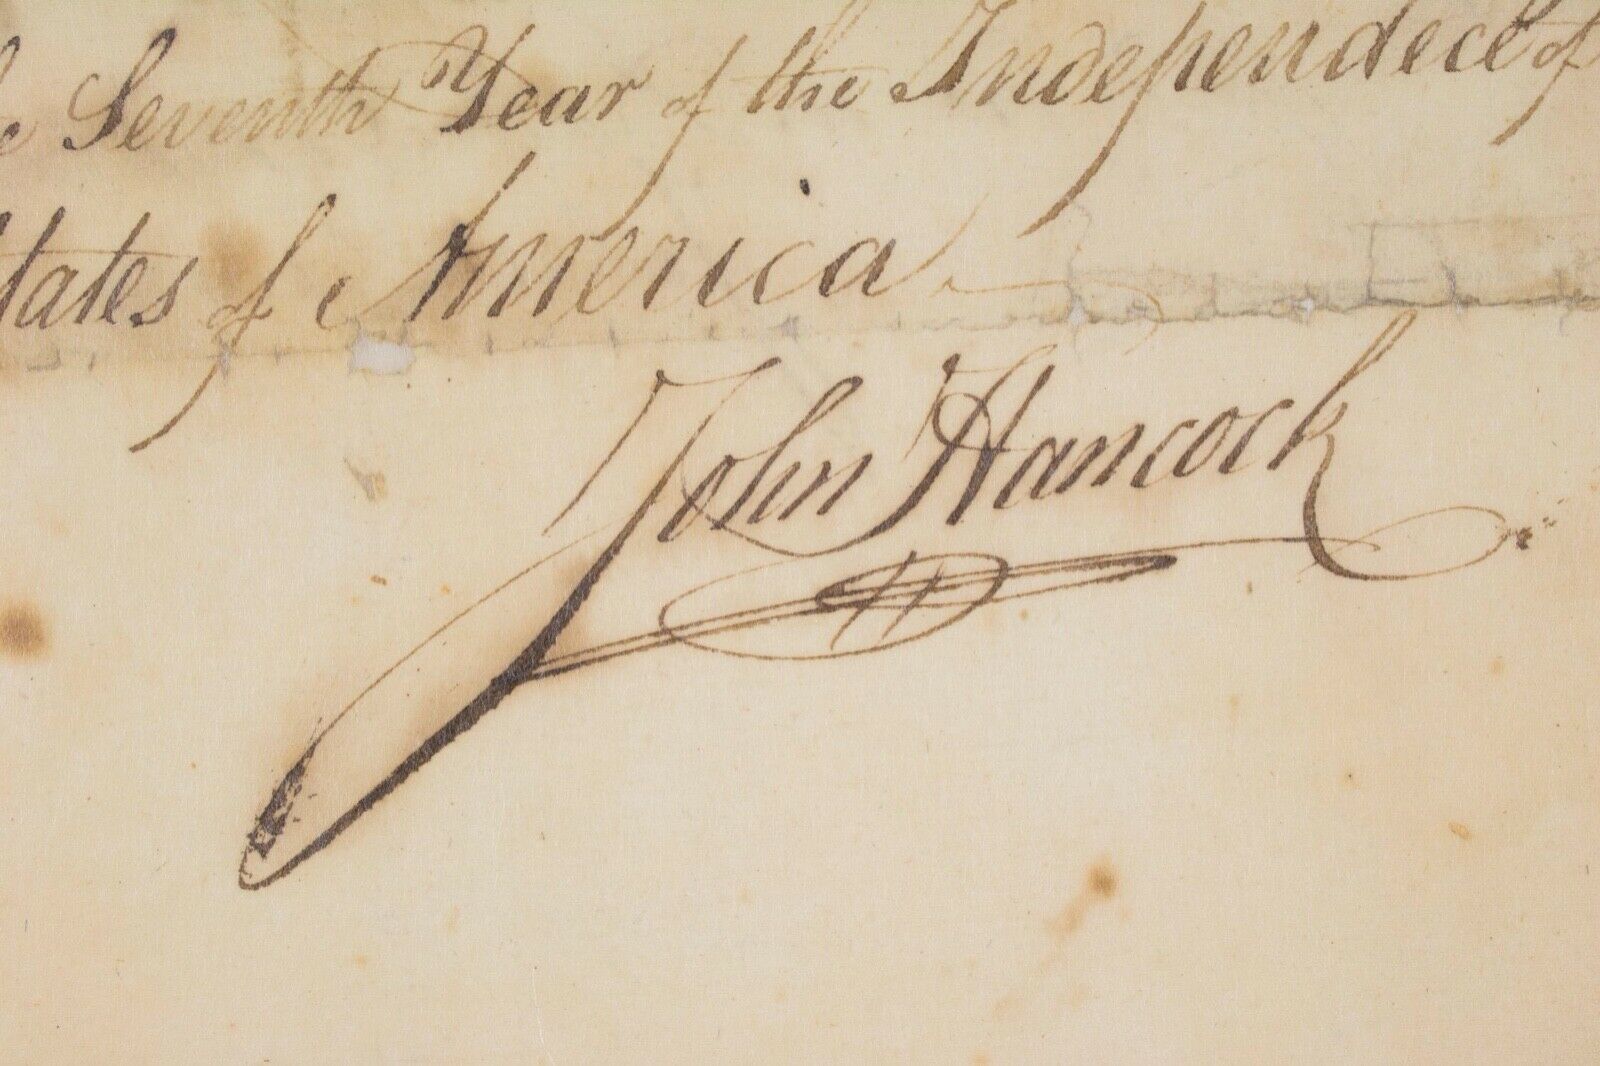 Seventh Year of the Independece of
States of America
John Hancock